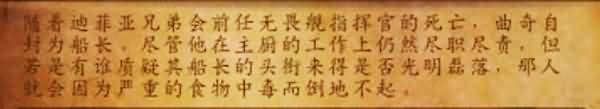 随着迪菲亚兄弟会前任无畏舰指挥官的死亡，曲奇自
封为船长。尽管他在主厨的工作上仍然尽职尽责，但
若是有谁质疑其船长的头衔来得是否光明磊落，那人
就会因为严重的食物中毒而倒地不起。